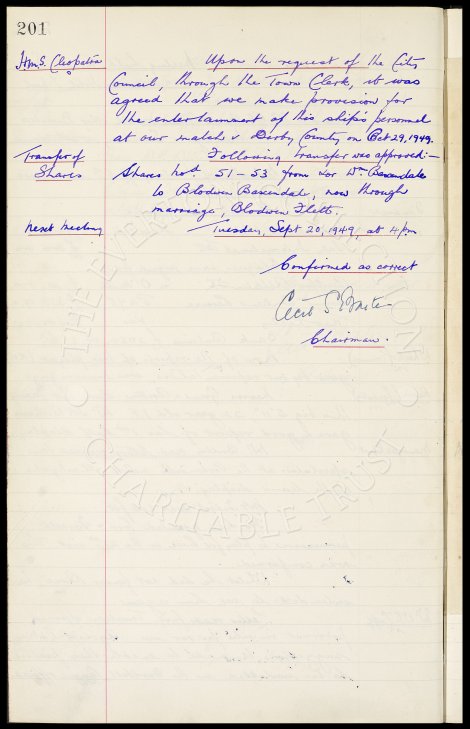 201
H.M.S. Cleopatra
Upon the request of the City
Council, through the Town Clerk, it was
agreed that we make provision for
the entertainment of this ship's personnel
at our match v Derby County on Oct 29, 1949.
Transfer of
Shares
Following transfer was approved:—
Shares nos 51 – 53 from Wm Baxendale
to Blodwen Baxendale, now through
marriage, Blodwen Flett.
Next meeting
Tuesday, Sept 20, 1949, at 4pm
Confirmed as correct
Cecil S.
Chairman.
THE EVERTON COLLECTION
CHARITABLE TRUST